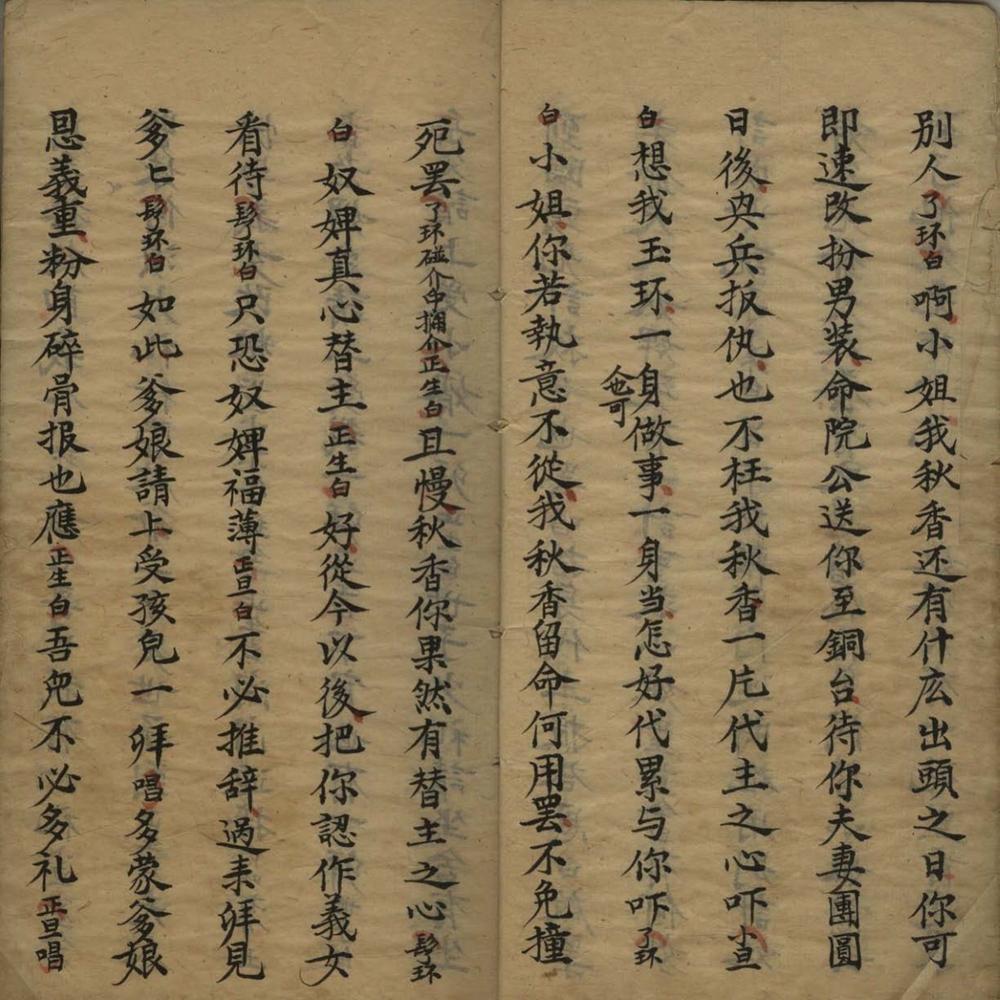 別人了环白啊小姐我秋香还有什庅出頭之日你可
即速改扮男装命院公送你至銅台待你夫妻團圓
日後央兵扳仇也不枉我秋香一片代主之心吓小旦
白想我玉环一身做事一身当怎好代累与你吓了环
会可
白小姐你若執意不從我秋香留命何用罢不免撞
死罢了环碰介中攔介正生白且慢秋香你果然有替主之心髩环
白奴婢真心替主正生白好從今以後把你認作義女
看待髩环白只恐奴婢福薄正旦白不必推辞過来拜見
爹〻髩环白如此爹娘請上受孩兒一拜唱多蒙爹娘
恩義重粉身碎骨报也應正生白吾兒不必多礼正旦唱